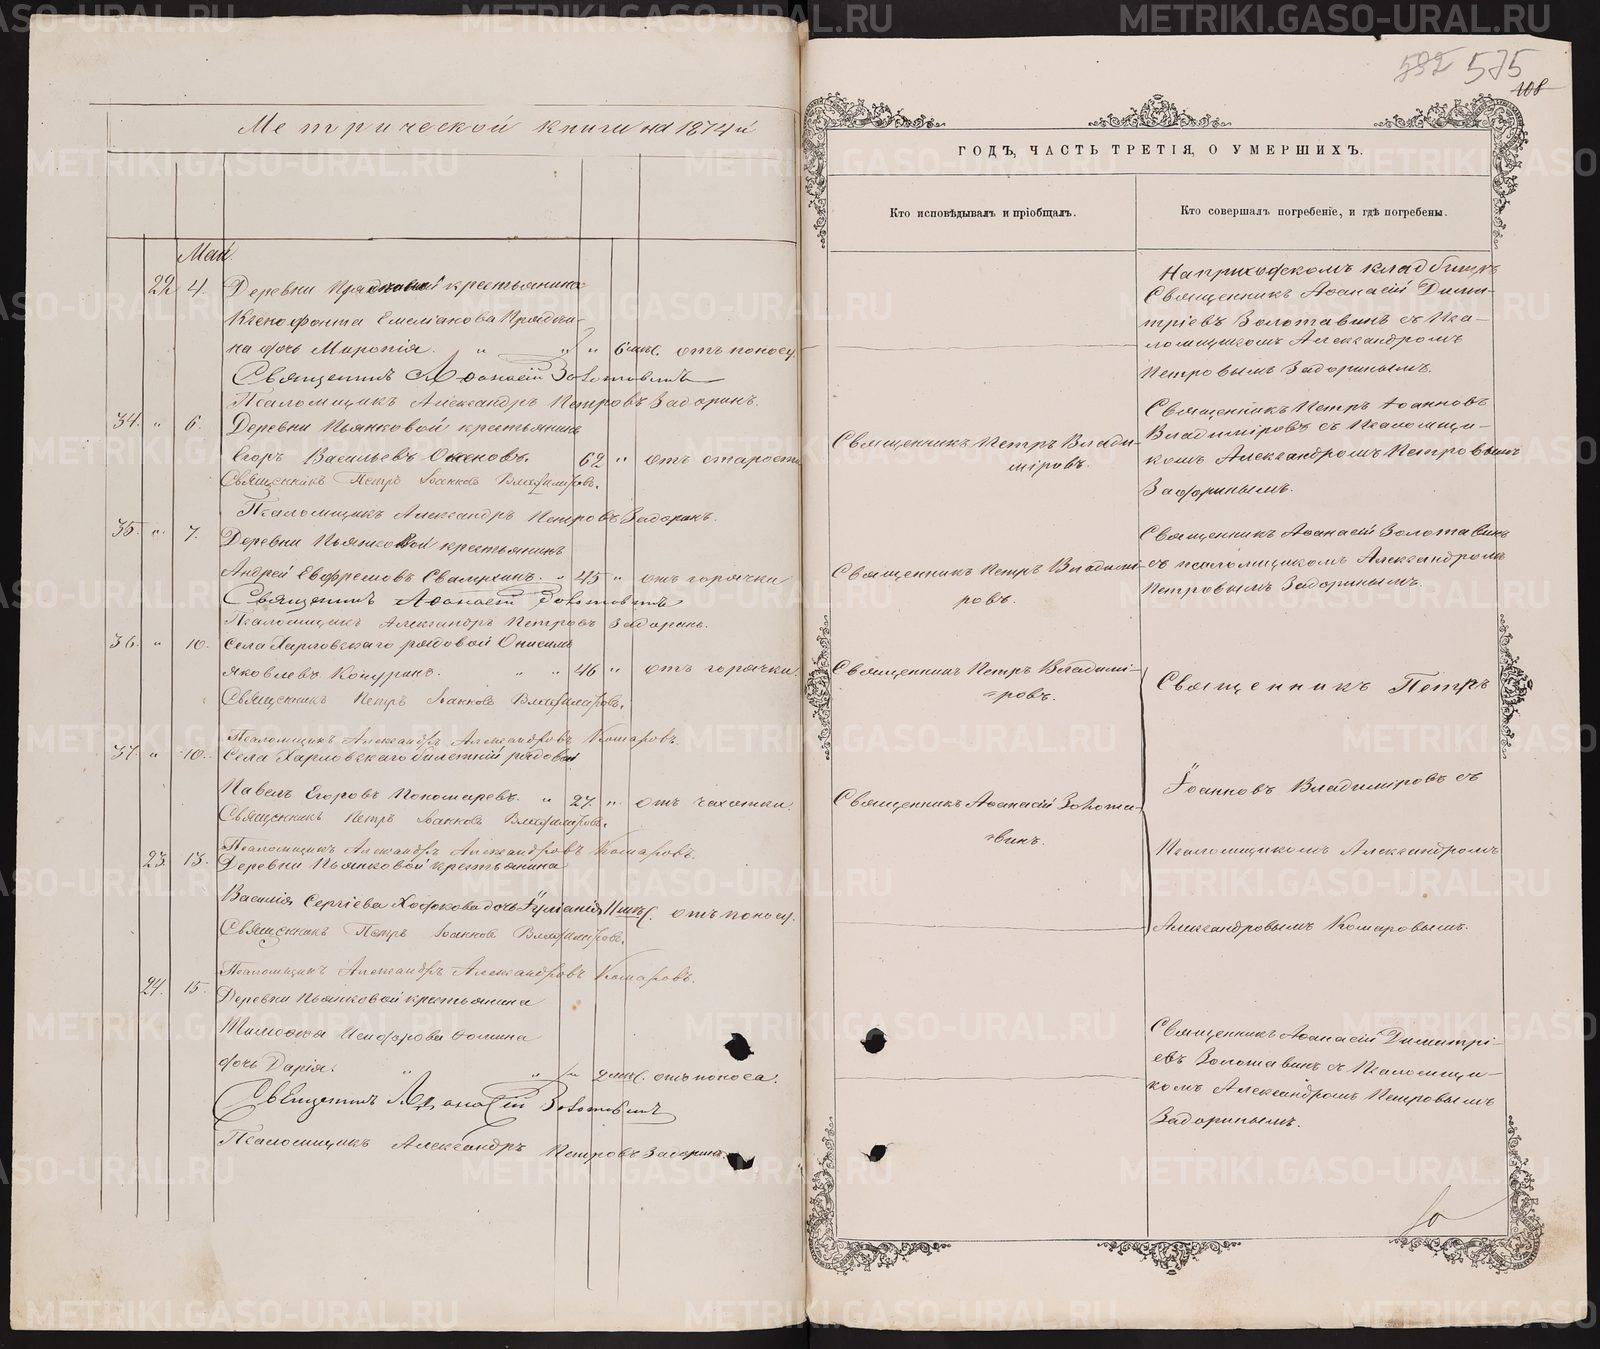 Метрической книги на 1874й
Май
22 4. Деревни крестьянина
Ксенофонта Емелiанова
на дочь Миропiя. " " " 6 мѣс. отъ поносу.
Священникъ Афанасiй Золотавинъ
Псаломщикъ Александръ Петровъ Задоринъ.
34. " 6. Деревни Пьянковой крестьянинъ
Егоръ Васильевъ 62 " отъ старости
Священникъ Петръ Iоанновъ Владимiровъ.
Псаломщикъ Александръ Петровъ Задоринъ.
35. " 7. Деревни Пьянковой крестьянинъ
Андрей Евфремовъ " 45 " отъ горячки
Священникъ Афанасiй Золотавинъ
Псаломщикъ Александръ Петровъ Задоринъ.
36. " 10. Села Харловскаго рядовой Онисимъ
Яковлевъ " " 46 " отъ горячки.
Священникъ Петръ Iоанновъ Владимiровъ.
Псаломщикъ Александръ Александровъ Комаровъ.
37. " 10. Села Харловскаго билетный рядовой
Павелъ Егоровъ Пономаревъ. " 27. " отъ чахотки.
Священникъ Петръ Iоанновъ Владимiровъ.
Псаломщикъ Александръ Александровъ Комаровъ.
23. 13. Деревни Пьянковой крестьянина
Василiя Сергiева дочь Iулiанiя 11 мѣс. отъ поносу.
Священникъ Петръ Iоанновъ Владимiровъ.
Псаломщикъ Александръ Александровъ Комаровъ.
24. 15. Деревни Пьянковой крестьянина
Тимофея
дочь Дарiя. " " 2 мѣс. отъ поноса.
Священникъ Афанасiй Золотавинъ
Псаломщикъ Александръ Петровъ Задоринъ
532 575
108
ГОДЪ, ЧАСТЬ ТРЕТІЯ, О УМЕРШИХЪ.
Кто исповѣдывалъ и пріобщалъ.
Кто совершалъ погребеніе, и гдѣ погребены.
На приходскомъ кладбищѣ
Священникъ Афанасiй Дими-
трiевъ Золотавинъ съ Пса-
ломщикомъ Александромъ
Петровымъ Задоринымъ.
Священникъ Петръ Влади-
мiровъ.
Священникъ Петръ Iоанновъ
Владимiровъ съ Псаломщи-
комъ Александромъ Петровымъ
Задоринымъ.
Священникъ Петръ Владимi-
ровъ.
Священникъ Афанасiй Золотавинъ
съ псаломщикомъ Александромъ
Петровымъ Задоринымъ.
Священникъ Петръ Владимi-
ровъ.
Священникъ Афанасiй Золота-
винъ.
Священникъ Петръ
Iоанновъ Владимiровъ съ
Псаломщикомъ Александромъ
Александровымъ Комаровымъ.
Священникъ Афанасiй Димитрi-
евъ Золотавинъ съ Псаломщи-
комъ Александромъ Петровымъ
Задоринымъ.
METRIKI.GASO-URAL.RU